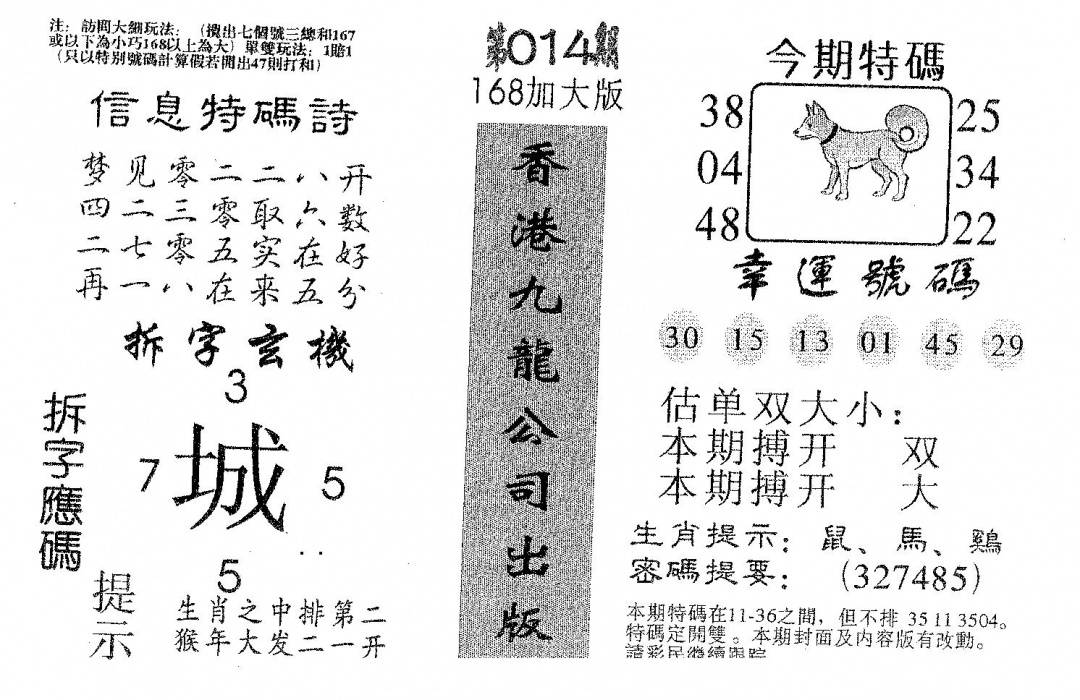 注：訪問大細玩法：（攪出七個號三總和167
或以下為小巧168以上為大）單雙玩法：1賠1
（只以特別號碼計算假若開出47則打和）
信息特碼詩
梦见零二二八开
四二三零取六数
二七零五实在好
再一八在来五分
拆字玄機
拆字應碼
3
7
城
5
5
提示
生肖之中排第二
猴年大发二一开
第014期
168加大版
香港九龍公司出版
今期特碼
38
04
48
25
34
22
幸運號碼
30 15 13 01 45 29
估单双大小：
本期搏开 双
本期搏开 大
生肖提示：鼠、馬、鷄
密碼提要：（327485）
本期特碼在11-36之間，但不排 35 11 3504。
特碼定開雙。本期封面及内容版有改動。
請彩民繼續跟踪